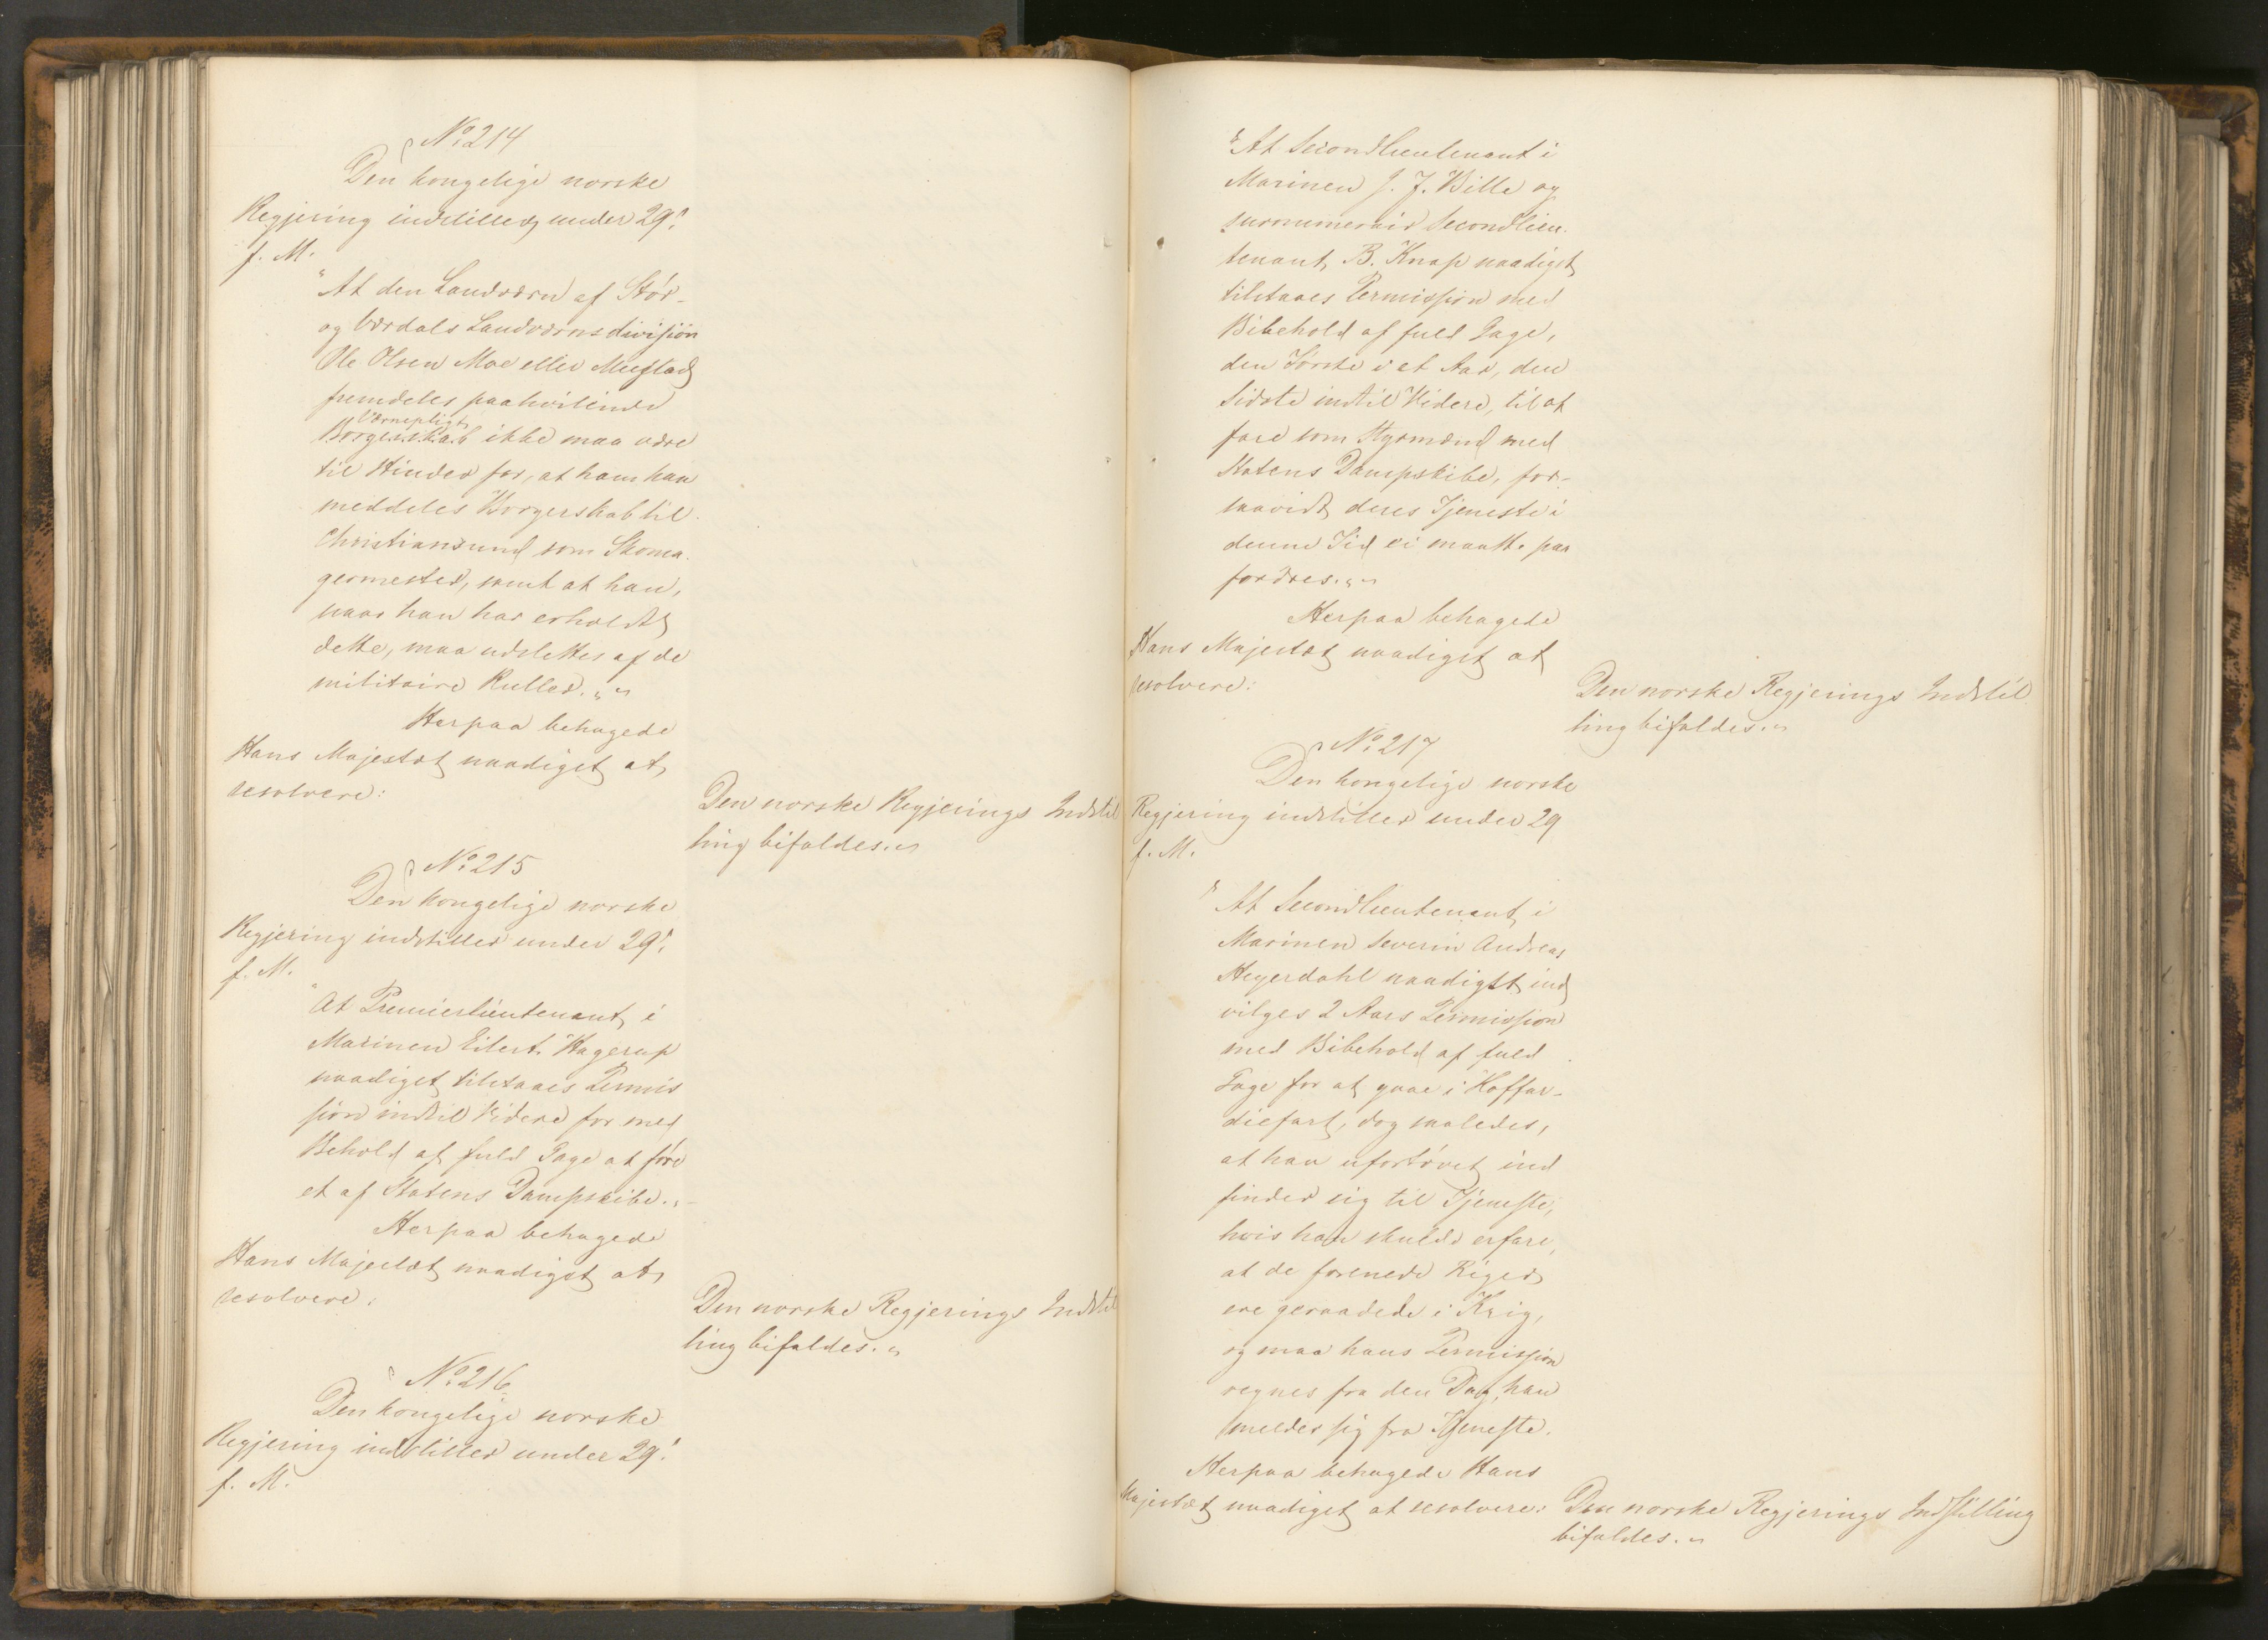 No 214
Den kongelige norske
Regjering indstiller under 29.
f. M.
"At den Landværn af Stør-
og Værdals Landværnsdivision
Ole Olsen Moe eller Mustad
fremdeles paahvilende
Værnepligt
Borgerskab ikke maa være
til Hinder for, at ham kan
meddeles Borgerskab til
Christiansund som Skoma-
germester, samt at han,
naar han har erholdt
dette, maa udslettes af de
militaire Ruller."
Herpaa behagede
Hans Majestæt naadigst at
resolvere:
Den norske Regjerings Indstil
ling bifaldes."
No 215
Den kongelige norske
Regjering indstiller under 29.
f. M.
"At Premierlieutenant i
Marinen Eilert Hagerup
naadigst tilstaaes Permis
sion indtil Videre for med
Behold af fuld Gage at føre
et af Statens Dampskibe."
Herpaa behagede
Hans Majestæt naadigst at
resolvere:
Den norske Regjerings Indstil
ling bifaldes."
No 216
Den kongelige norske
Regjering indstiller under 29.
f. M.
"At Secondlieutenant i
Marinen J. J. Bille og
surnumerair Secondlieu-
tenant B. Knap naadigst
tilstaaes Permission med
Bibehold af fuld Gage,
den Første i et Aar, den
Sidste indtil Videre, til at
fare som Styrmænd med
Statens Dampskibe, for-
saavidt deres Tjeneste i
denne Tid ei maatte paa
fordres."
Herpaa behagede
Hans Majestæt naadigst at
resolvere:
Den norske Regjerings Indstil
ling bifaldes."
No 217
Den kongelige norske
Regjering indstiller under 29
f. M.
"At Secondlieutenant i
Marinen Severin Andreas
Heyerdahl naadigst ind
vilges 2 Aars Permission
med Bibehold af fuld
Gage for at gaae i Koffar-
diefart, dog saaledes,
at han ufortøvet ind
finder sig til Tjeneste,
hvis han skulde erfare,
at de forenede Riger
ere geraadede i Krig,
og maa hans Permission
regnes fra den Dag, han
melder sig fra Tjeneste.
Herpaa behagede Hans
Majestæt naadigst at resolvere:
Den norske Regjerings Indstilling
bifaldes."